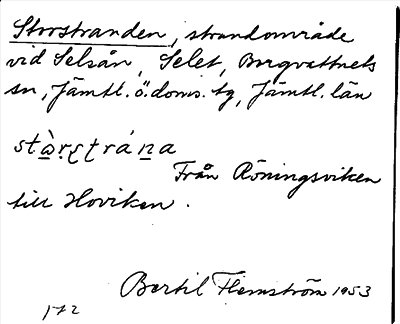 Storstranden, strandområde
vid Selsån, Selet, Borgvattnets
sn, Jämtl. ö. doms. tg, Jämtl. län
stὼ̱ṛʂʈráṉa
Från Röningsviken
till Hoviken.
Bertil Flemström 1953
172